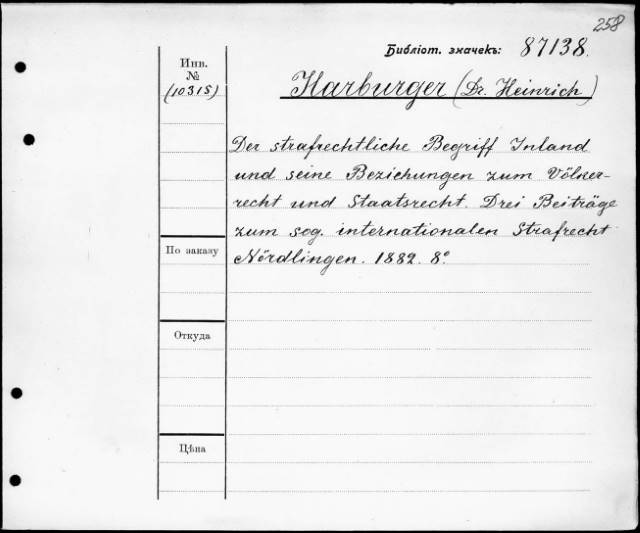 258
Библіот. значекъ: 87138.
Инв.
№
(10315)
Harburger (Dr. Heinrich)
Der strafrechtliche Begriff Inland
und seine Beziehungen zum Völker-
recht und Staatsrecht. Drei Beiträge
zum sog. internationalen Strafrecht.
Nördlingen. 1882. 8º.
По заказу
Откуда
Цѣна